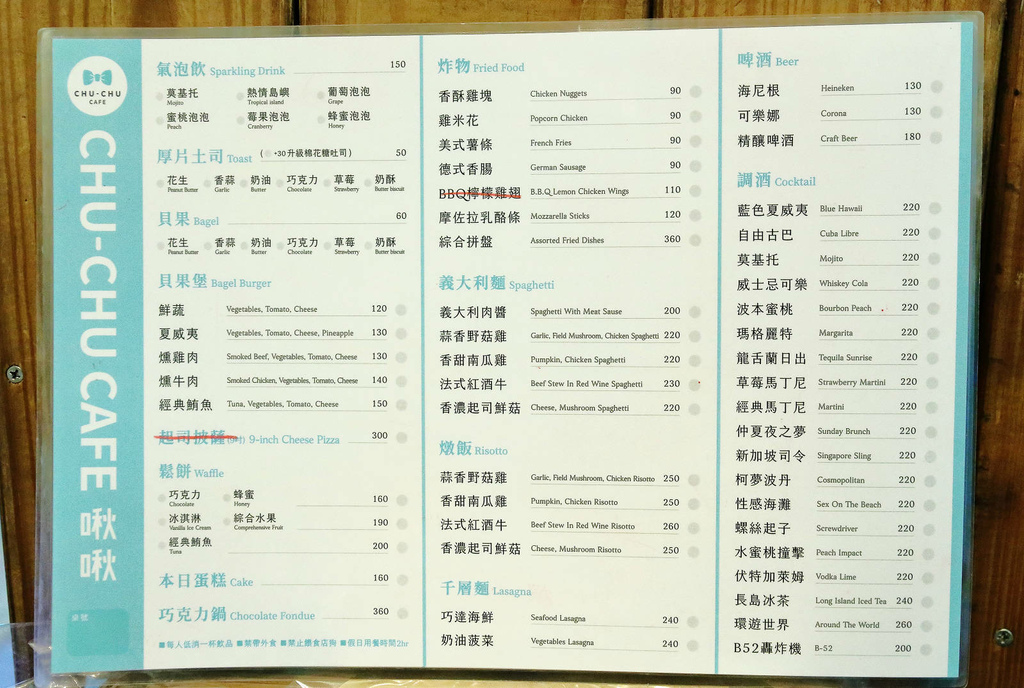 CHU-CHU
CAFE
CHU-CHU CAFE 啾啾
桌號
氣泡飲 Sparkling Drink 150
莫基托 熱情島嶼 葡萄泡泡
Mojito Tropical island Grape
蜜桃泡泡 莓果泡泡 蜂蜜泡泡
Peach Cranberry Honey
厚片土司 Toast ( +30升級棉花糖吐司) 50
花生 香蒜 奶油 巧克力 草莓 奶酥
Peanut Butter Garlic Butter Chocolate Strawberry Butter biscuit
貝果 Bagel 60
花生 香蒜 奶油 巧克力 草莓 奶酥
Peanut Butter Garlic Butter Chocolate Strawberry Butter biscuit
貝果堡 Bagel Burger
鮮蔬 Vegetables, Tomato, Cheese 120
夏威夷 Vegetables, Tomato, Cheese, Pineapple 130
燻雞肉 Smoked Beef, Vegetables, Tomato, Cheese 130
燻牛肉 Smoked Chicken, Vegetables, Tomato, Cheese 140
經典鮪魚 Tuna, Vegetables, Tomato, Cheese 150
起司披薩(9吋) 9-inch Cheese Pizza 300
鬆餅 Waffle
巧克力 蜂蜜 160
Chocolate Honey
冰淇淋 綜合水果 190
Vanilla Ice Cream Comprehensive Fruit
經典鮪魚 200
Tuna
本日蛋糕 Cake 160
巧克力鍋 Chocolate Fondue 360
■每人低消一杯飲品 ■禁帶外食 ■禁止餵食店狗 ■假日用餐時間2hr
炸物 Fried Food
香酥雞塊 Chicken Nuggets 90
雞米花 Popcorn Chicken 90
美式薯條 French Fries 90
德式香腸 German Sausage 90
BBQ檸檬雞翅 B.B.Q Lemon Chicken Wings 110
摩佐拉乳酪條 Mozzarella Sticks 120
綜合拼盤 Assorted Fried Dishes 360
義大利麵 Spaghetti
義大利肉醬 Spaghetti With Meat Sause 200
蒜香野菇雞 Garlic, Field Mushroom, Chicken Spaghetti 220
香甜南瓜雞 Pumpkin, Chicken Spaghetti 220
法式紅酒牛 Beef Stew In Red Wine Spaghetti 230
香濃起司鮮菇 Cheese, Mushroom Spaghetti 220
燉飯 Risotto
蒜香野菇雞 Garlic, Field Mushroom, Chicken Risotto 250
香甜南瓜雞 Pumpkin, Chicken Risotto 250
法式紅酒牛 Beef Stew In Red Wine Risotto 260
香濃起司鮮菇 Cheese, Mushroom Risotto 250
千層麵 Lasagna
巧達海鮮 Seafood Lasagna 240
奶油菠菜 Vegetables Lasagna 240
啤酒 Beer
海尼根 Heineken 130
可樂娜 Corona 130
精釀啤酒 Craft Beer 180
調酒 Cocktail
藍色夏威夷 Blue Hawaii 220
自由古巴 Cuba Libre 220
莫基托 Mojito 220
威士忌可樂 Whiskey Cola 220
波本蜜桃 Bourbon Peach 220
瑪格麗特 Margarita 220
龍舌蘭日出 Tequila Sunrise 220
草莓馬丁尼 Strawberry Martini 220
經典馬丁尼 Martini 220
仲夏夜之夢 Sunday Brunch 220
新加坡司令 Singapore Sling 220
柯夢波丹 Cosmopolitan 220
性感海灘 Sex On The Beach 220
螺絲起子 Screwdriver 220
水蜜桃撞擊 Peach Impact 220
伏特加萊姆 Vodka Lime 220
長島冰茶 Long Island Iced Tea 240
環遊世界 Around The World 260
B52轟炸機 B-52 200